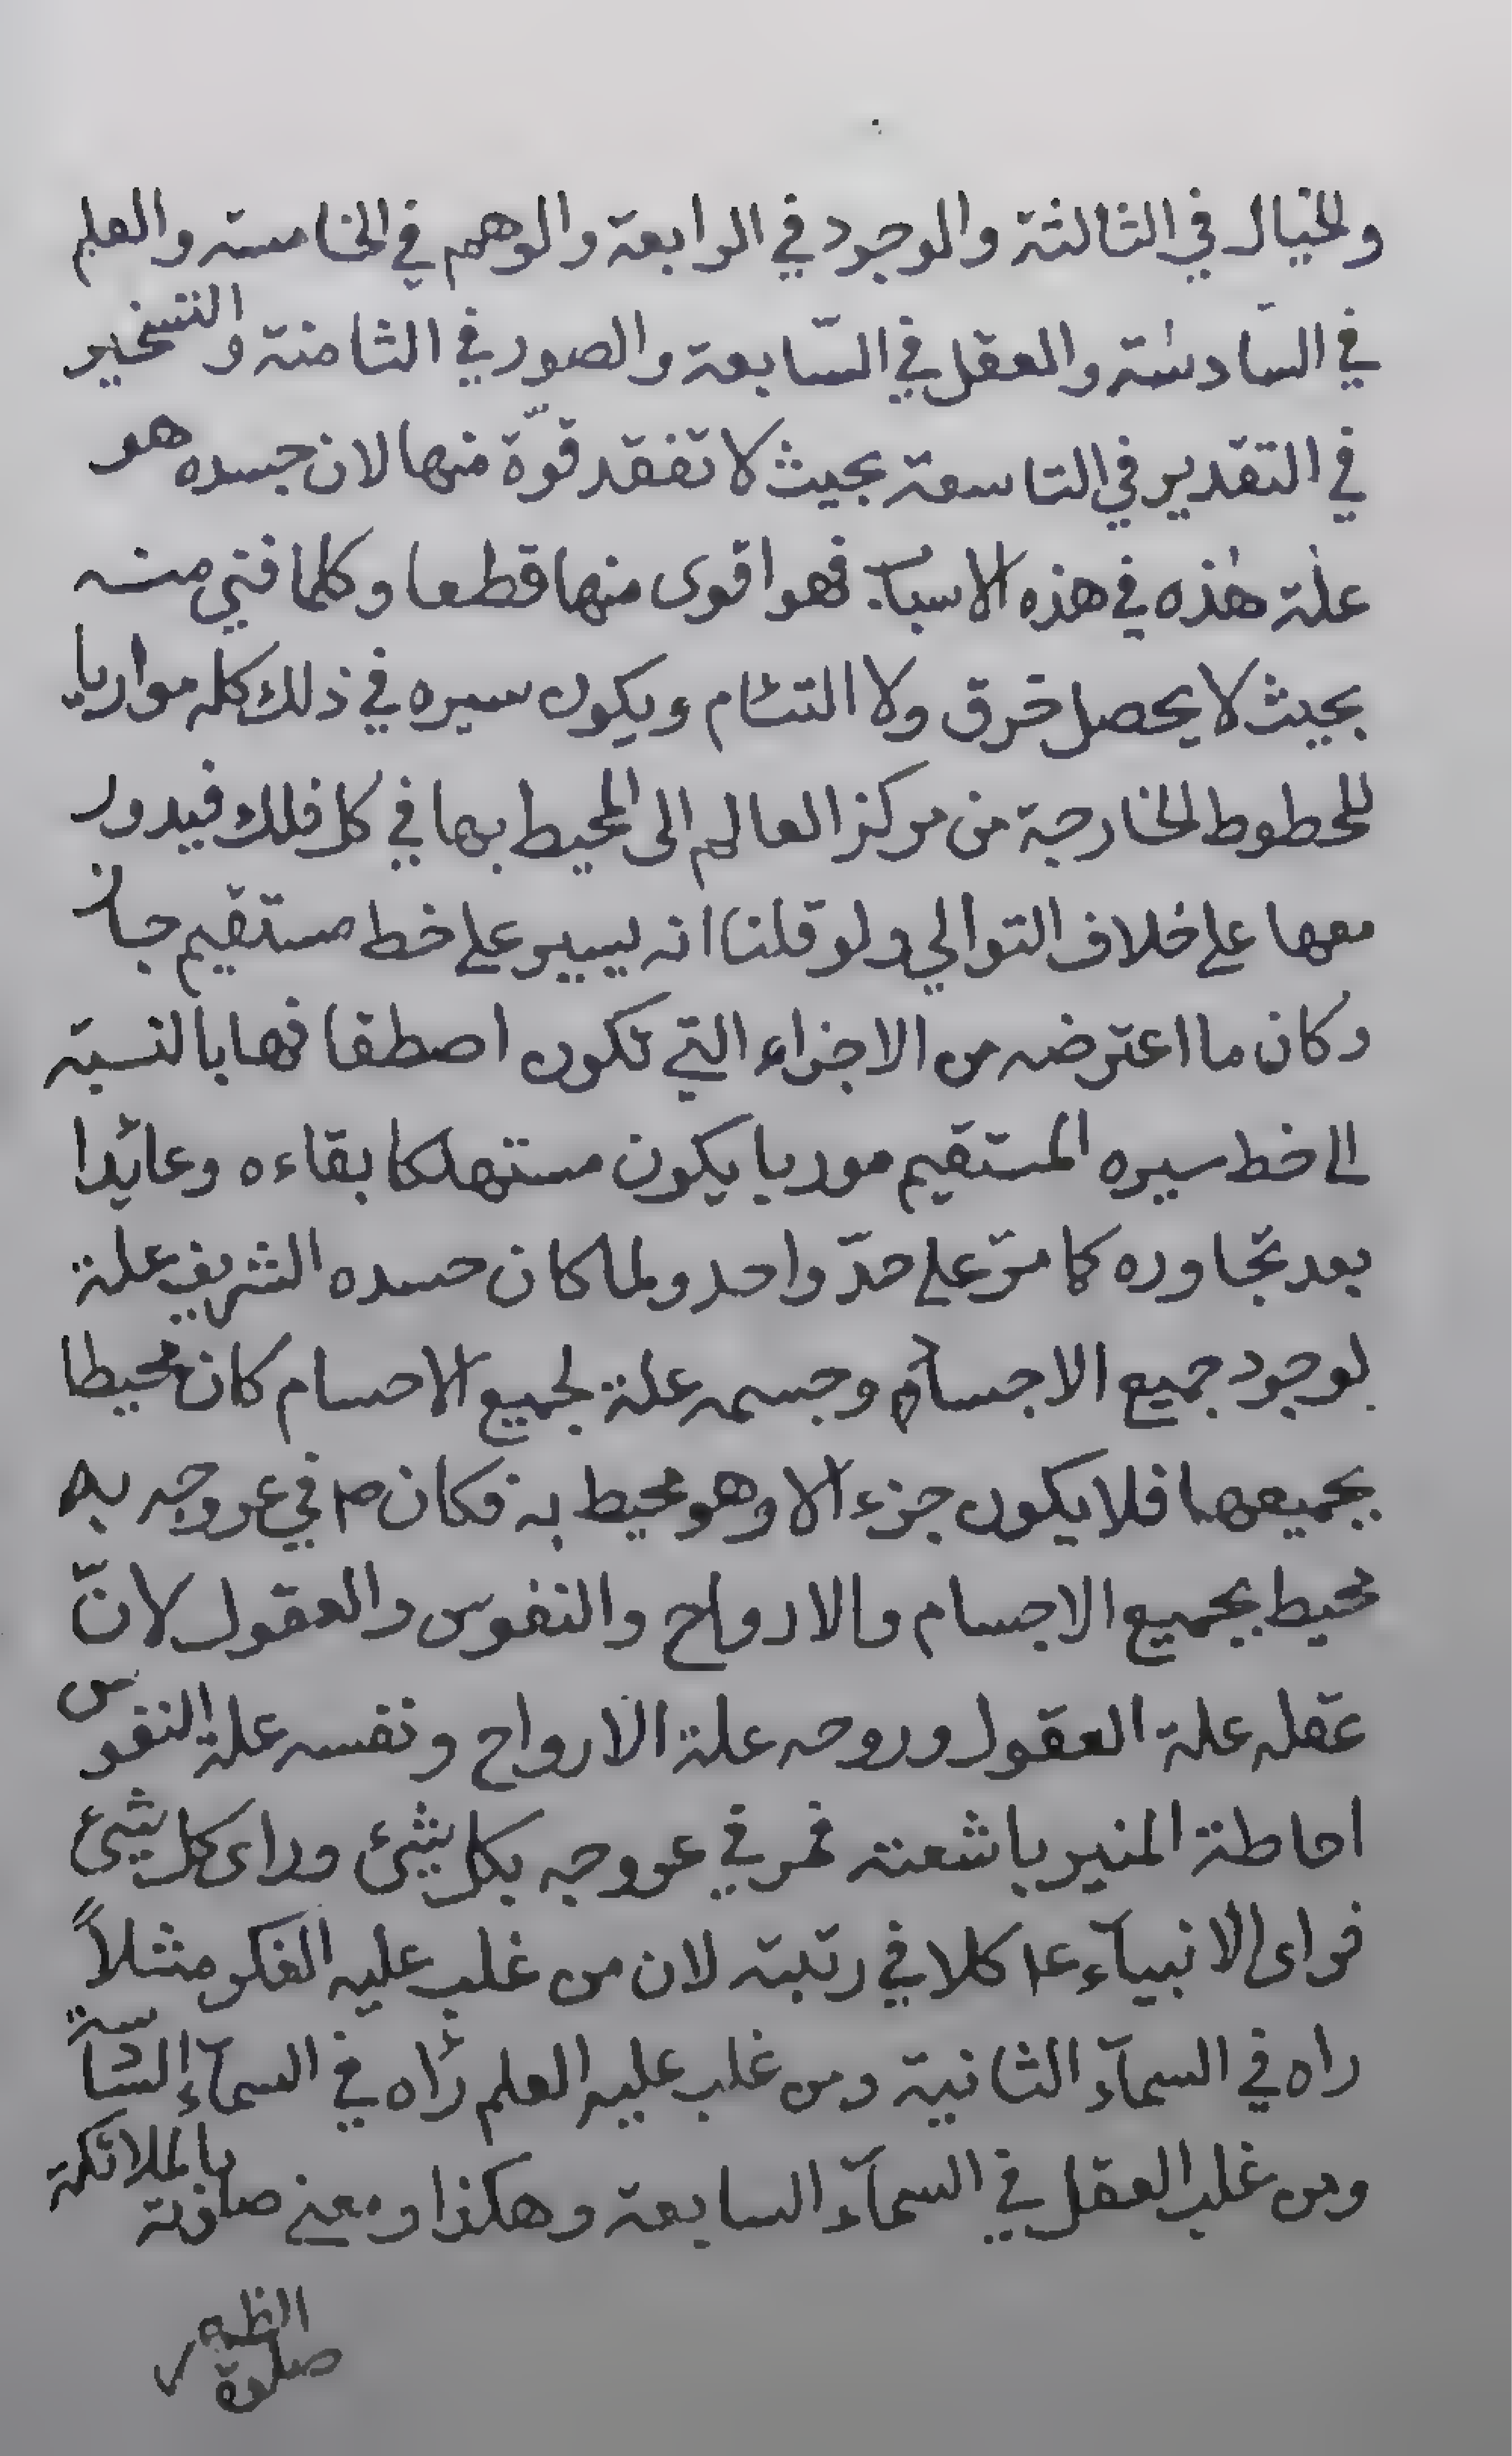 والخيال في الثالثة والوجود في الرابعة والوهم في الخامسة والعلم
في السّادسة والعقل في السّابعة والصور في الثامنة والتسخير
في التقدير في التاسعة بحيث لا تفقد قوّة منها لان جسده هو
علة هذه في هذه الاسباب فهو اقوى منها قطعا وكلما فني منه
بحيث لا يحصل خرق ولا التئام ويكون سيره في ذلك كله موازيا
للخطوط الخارجة من مركز العالم الى المحيط بها في كل فلك فيدور
معها على خلاف التوالي ولو قلنا انه يسير على خط مستقيم جاز
وكان ما اعترضه من الاجزاء التي تكون اصطفافها بالنسبة
الى خط سيره المستقيم موربا يكون مستهلكا بقاءه وعائدا
بعد تجاوره كما مرّ على حدّ واحد ولما كان حسده الشريف علة
لوجود جميع الاجسام وجسمه علة لجميع الاحسام كان محيطا
بجميعها فلا يكون جزء الا وهو محيط به فكان ص في عروجه به
محيط بجميع الاجسام والارواح والنفوس والعقول لانّ
عقله علة العقول وروحه علة الارواح ونفسه علة النفوس
احاطة المنير باشعته فمر في عروجه بكل شيئ وراى كل شيئ
فراى الانبيآء ع كلا في رتبته لان من غلب عليه الفكر مثلاً
راه في السمآء الثانية ومن غلب عليه العلم رأه في السمآء السادسة
ومن غلب العقل في السمآء السابعة وهكذا ومعنى صلوته بالملائكة
صلوة الظهر